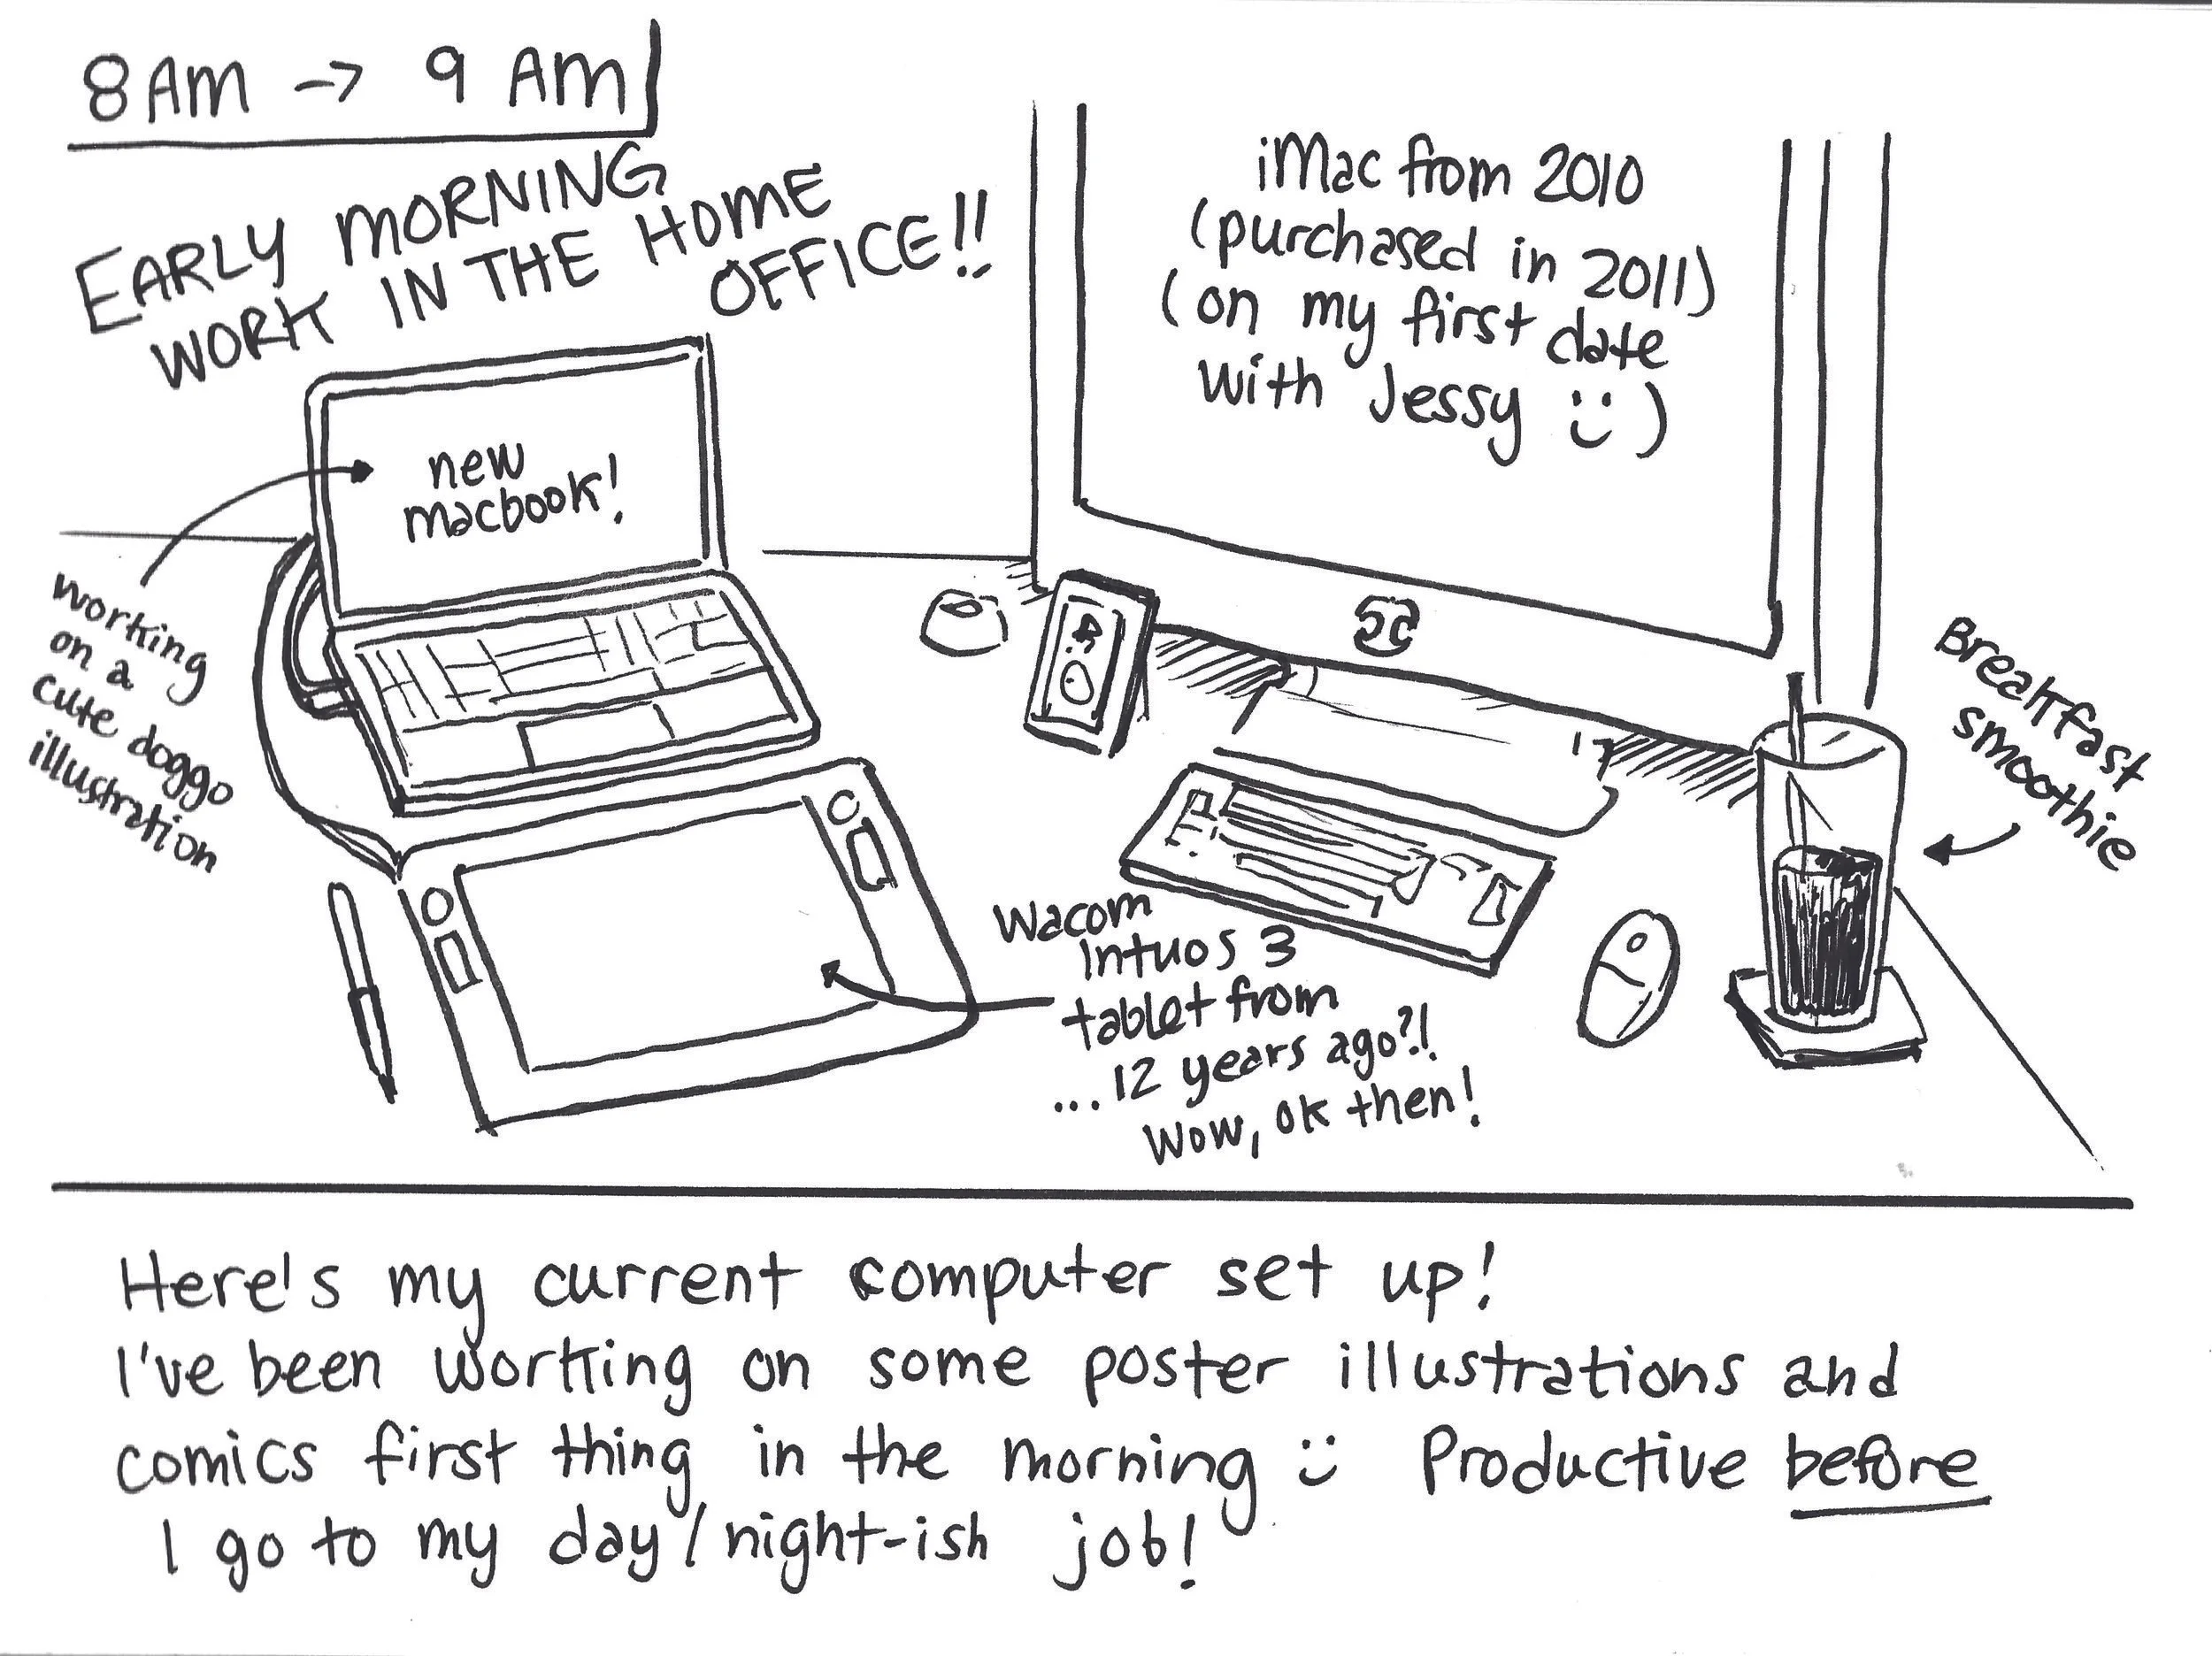 8 AM -> 9 AM
EARLY MORNING
WORK IN THE HOME
OFFICE!!
new
macbook!
working
on a
cute doggo
illustration
iMac from 2010
(purchased in 2011)
(on my first date
with Jessy :))
Breakfast
smoothie
Wacom
Intuos 3
tablet from
...12 years ago?!
Wow, ok then!
Here's my current computer set up!
I've been working on some poster illustrations and
comics first thing in the morning :) Productive before
I go to my day/night-ish job!